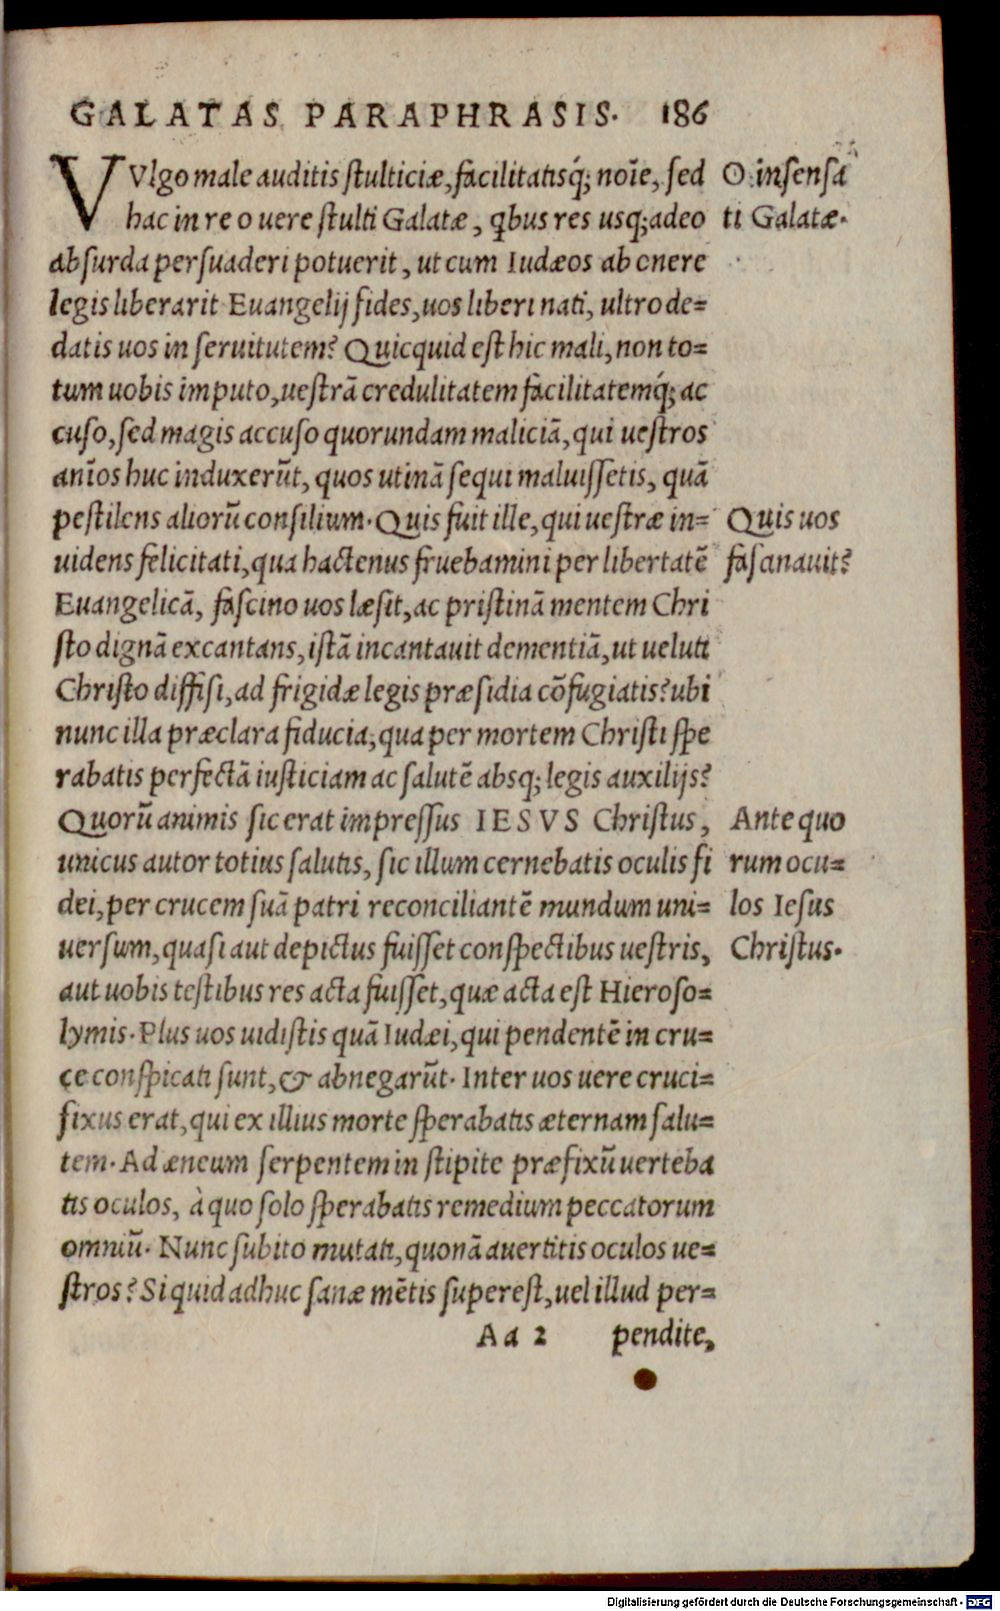 GALATAS PARAPHRASIS. 186
VUlgo male auditis stulticiæ, facilitatisq́; noĩe, sed
hac in re o uere stulti Galatæ, qbus res usq; adeo
absurda persuaderi potuerit, ut cum Iudæos ab onere
legis liberarit Euangelij fides, uos liberi nati, ultro de=
datis uos in seruitutem? Quicquid est hic mali, non to=
tum uobis imputo, uestrã credulitatem facilitatemq́; ac
cuso, sed magis accuso quorundam maliciã, qui uestros
anĩos huc induxerũt, quos utinã sequi maluissetis, quã
pestilens aliorũ consilium. Quis fuit ille, qui uestræ in=
uidens felicitati, qua hactenus fruebamini per libertatẽ
Euangelicã, fascino uos læsit, ac pristinã mentem Chri
sto dignã excantans, istã incantauit dementiã, ut ueluti
Christo diffisi, ad frigidæ legis præsidia cõfugiatis? ubi
nunc illa præclara fiducia, qua per mortem Christi spe
rabatis perfectã iusticiam ac salutẽ absq; legis auxilijs?
Quorũ animis sic erat impressus IESVS Christus,
unicus autor totius salutis, sic illum cernebatis oculis fi
dei, per crucem suã patri reconciliantẽ mundum uni=
uersum, quasi aut depictus fuisset conspectibus uestris,
aut uobis testibus res acta fuisset, quæ acta est Hieroso=
lymis. Plus uos uidistis quã Iudæi, qui pendentẽ in cru=
ce conspicati sunt, & abnegarũt. Inter uos uere cruci=
fixus erat, qui ex illius morte sperabatis æternam salu=
tem. Ad æneum serpentem in stipite præfixũ uerteba
tis oculos, à quo solo sperabatis remedium peccatorum
omniũ. Nunc subito mutati, quonã auertitis oculos ue=
stros? Si quid adhuc sanæ mẽtis superest, uel illud per=
Aa 2 pendite,
O insensa
ti Galatæ.
Quis uos
fasanauit?
Ante quo
rum ocu=
los Iesus
Christus.
Digitalisierung gefördert durch die Deutsche Forschungsgemeinschaft - DFG